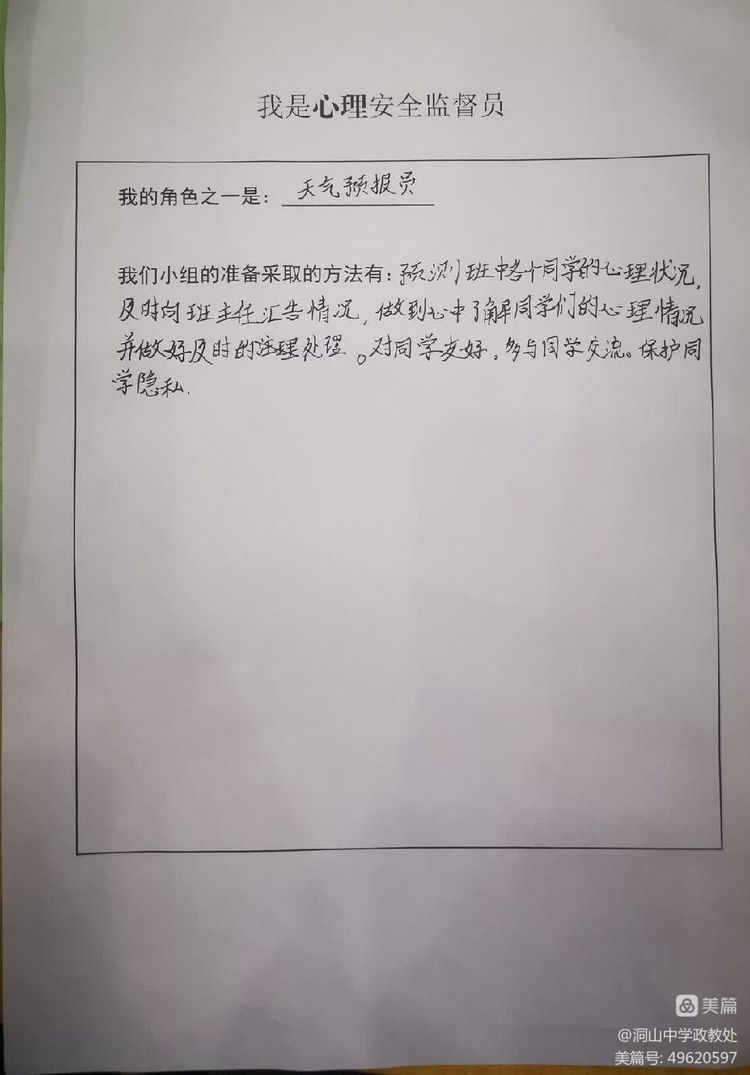 我是心理安全监督员
我的角色之一是：天气预报员
我们小组的准备采取的方法有：预测班中各个同学的心理状况，
及时向班主任汇告情况，做到心中了解同学们的心理情况
并做好及时的理处理。对同学友好，多与同学交流。保护同
学隐私.
美篇
@洞山中学政教处
美篇号: 49620597